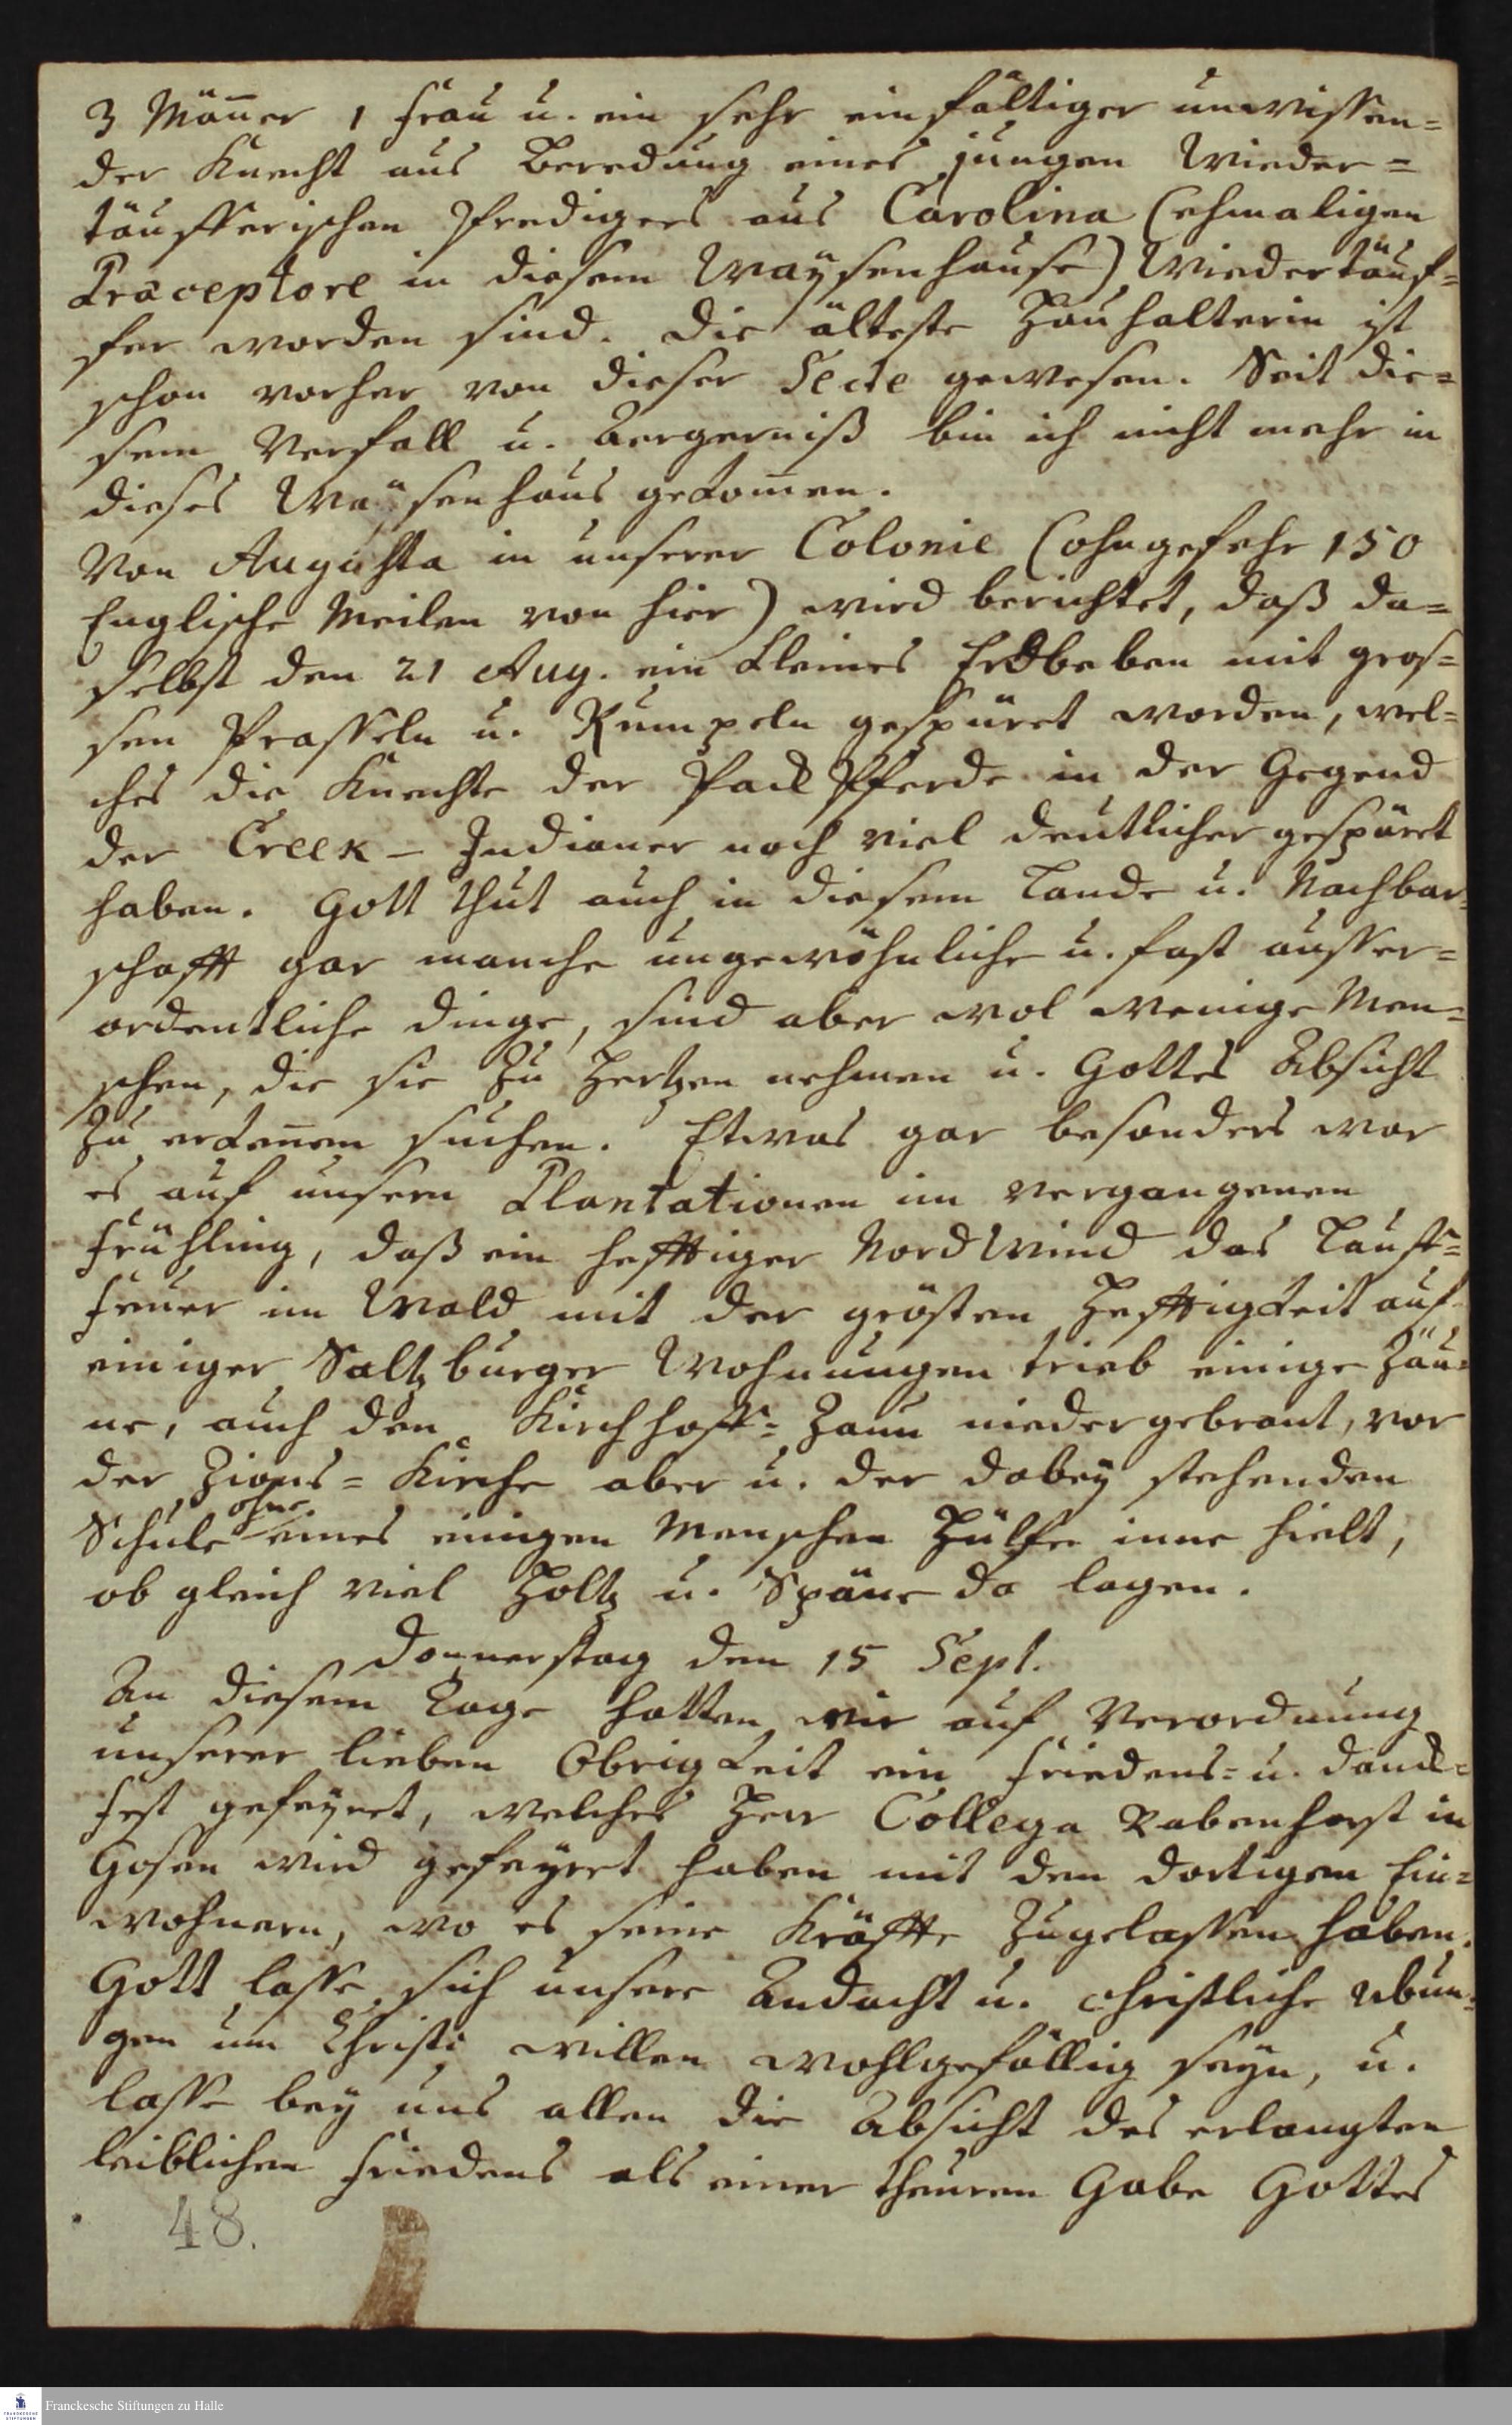 3 Mañer 1 Frau u. ein sehr einfältiger unwissen=
der Knecht aus Beredung eines jungen Wieder=
täufferischen Predigers aus Carolina (ehmaligen
Præceptore in diesem Waysenhause) Wiedertäuf=
fer worden sind. Die älteste Haußhalterin ist
schon vorher von dieser Secte gewesen. Seit die=
sem Verfall u. Aergerniß bin ich nicht mehr in
dieses Waysenhaus gekom̃en.
Von Augusta in unserer Colonie (ohngefehr 150
Englische Meilen von hier) wird berichtet, daß da=
selbst den 21 Aug. ein kleines Erdbeben mit gros=
sen Prasseln u. Rumpeln gespüret worden, wel=
ches die Knechte der Pack Pferde in der Gegend
der Creek - Indianer noch viel deutlicher gespüret
haben. Gott thut auch in diesem Lande u. Nachbar=
schafft gar manche ungewöhnliche u. fast ausser=
ordentliche Dinge, sind aber wol wenige Men=
schen, die sie zu Hertzen nehmen u. Gottes Absicht
zu erkeñen suchen. Etwas gar besonders war
es auf unsern Plantationen im vergangenen
Frühling, daß ein hefftiger Nord Wind das Lauff=
Feuer im Wald mit der grösten Hefftigkeit auf
einiger Saltzburger Wohnungen trieb einige Zäu=
ne, auch den Kirchhoff= Zaun niedergebrant, vor
der Zions= Kirche aber u. der dabey stehenden
Schule ohne eines einigen Menschen Hülfe inne hielt,
ob gleich viel Holtz u. Späne da lagen.
Donnerstag den 15 Sept.
An diesem Tage hatten wir auf Verordnung
unserer lieben Obrigkeit ein Friedens= u. Danck=
Fest gefeyret, welches Herr Collega Rabenhorst in
Gosen wird gefeyret haben mit den dortigen Ein=
wohnern, wo es seine Kräffte zugelassen haben.
Gott lasse sich unsere Andacht u. christliche Ubun=
gen um Christi willen wohlgefällig seyn, u.
lasse bey uns allen die Absicht des erlangten
leiblichen Friedens als einer theuren Gabe Gottes
48.
Franckesche Stiftungen zu Halle